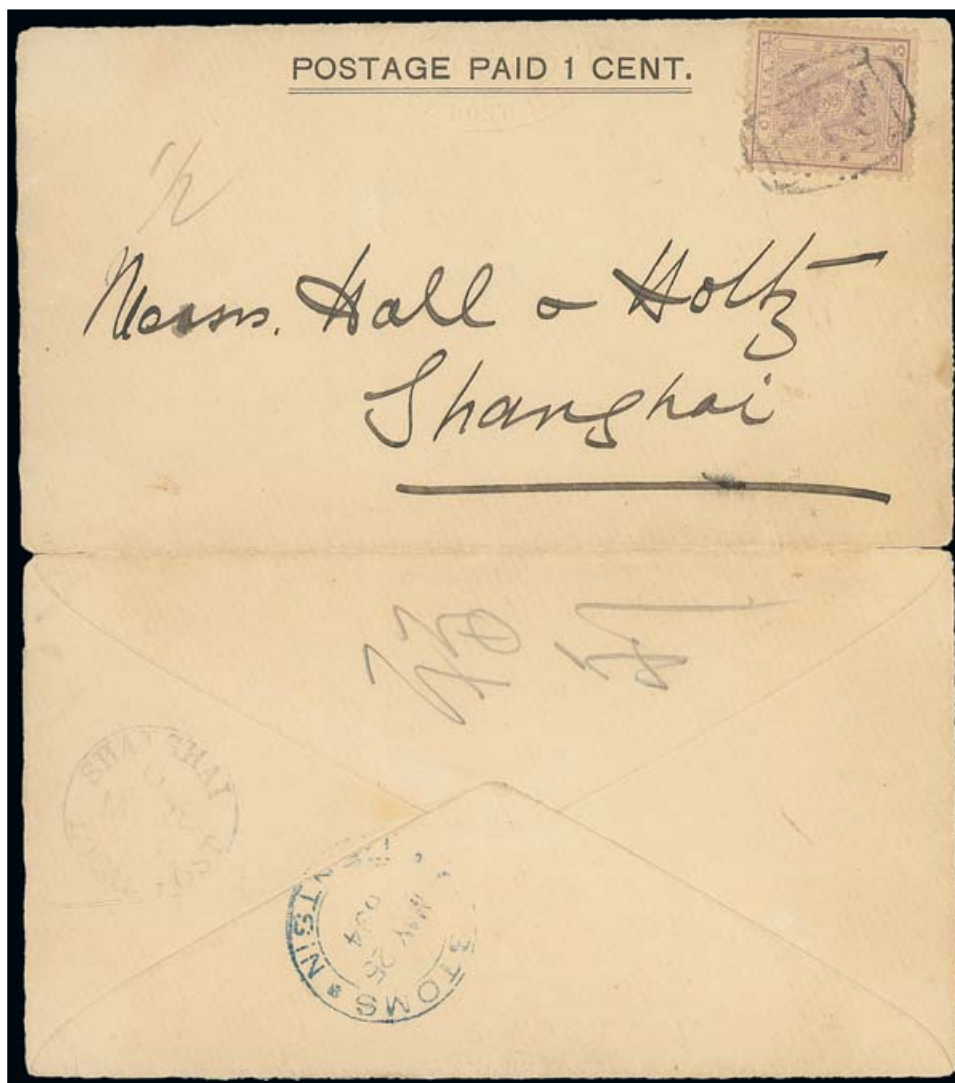 POSTAGE PAID 1 CENT.
CHINA
Messrs. Hall & Holtz
Shanghai
SHANGHAI
LOCAL POST
CUSTOMS
TIENTSIN
MAY 26